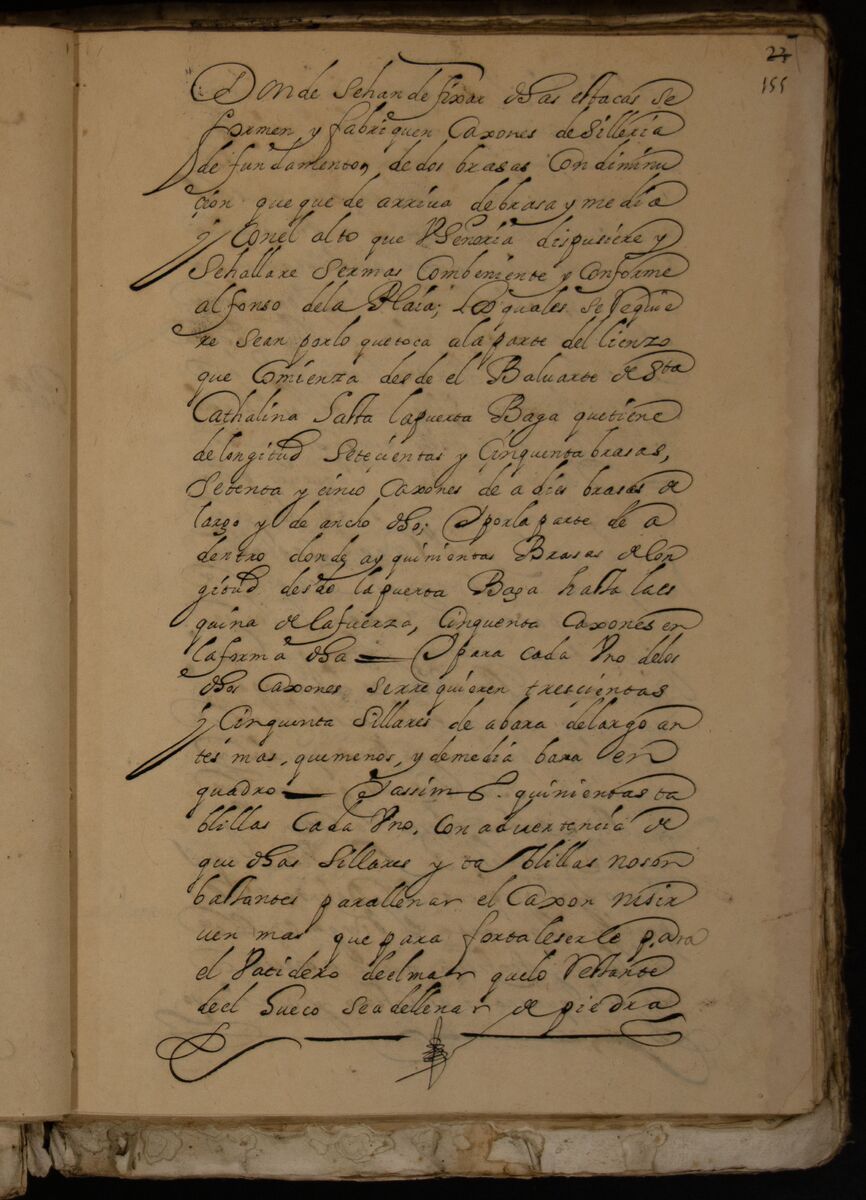 23
155
Donde sehan de fixar dhas estacas se
formen y fabriquen Caxones de silleria
de fundamento, de dos brasas Con diminu
cion que que de arriva de brasa y media
y Conel alto que VSenoria dispusiere y
sehallare sermas Combeniente y Conforme
al fonso dela Plaia; Los quales se Requie
re sean porlo quetoca ala parte del lienzo
que Comienza desde el Baluarte de Sta
Cathalina hasta lapuerta Baga quetiene
de longitud setecientas y Cinquenta brasas,
setenta y cinco Caxones de a dies brasas de
largo y de ancho dho; Y porla parte de a
dentro donde ay quinientas Brasas de lon
gitud desde lapuerta Baga hasta laes
quina de lafuerza, Cinquenta Caxones en
laforma dha — Y para cada Vno delos
dhos Caxones serrequieren trescientas
y Cinquenta sillares de abara delargo an
tes mas, quemenos, y demedia bara en
quadro — Y assim o. quinientas ta
blillas Cada Vno, Con advertencia de
que dhos sillares y tablillas noson
bastantes parallenar el Caxon nisir
uen mas que para fortaleserle para
el Vatidero deelmar quelo Restante
deel hueco sea dellenar de piedra